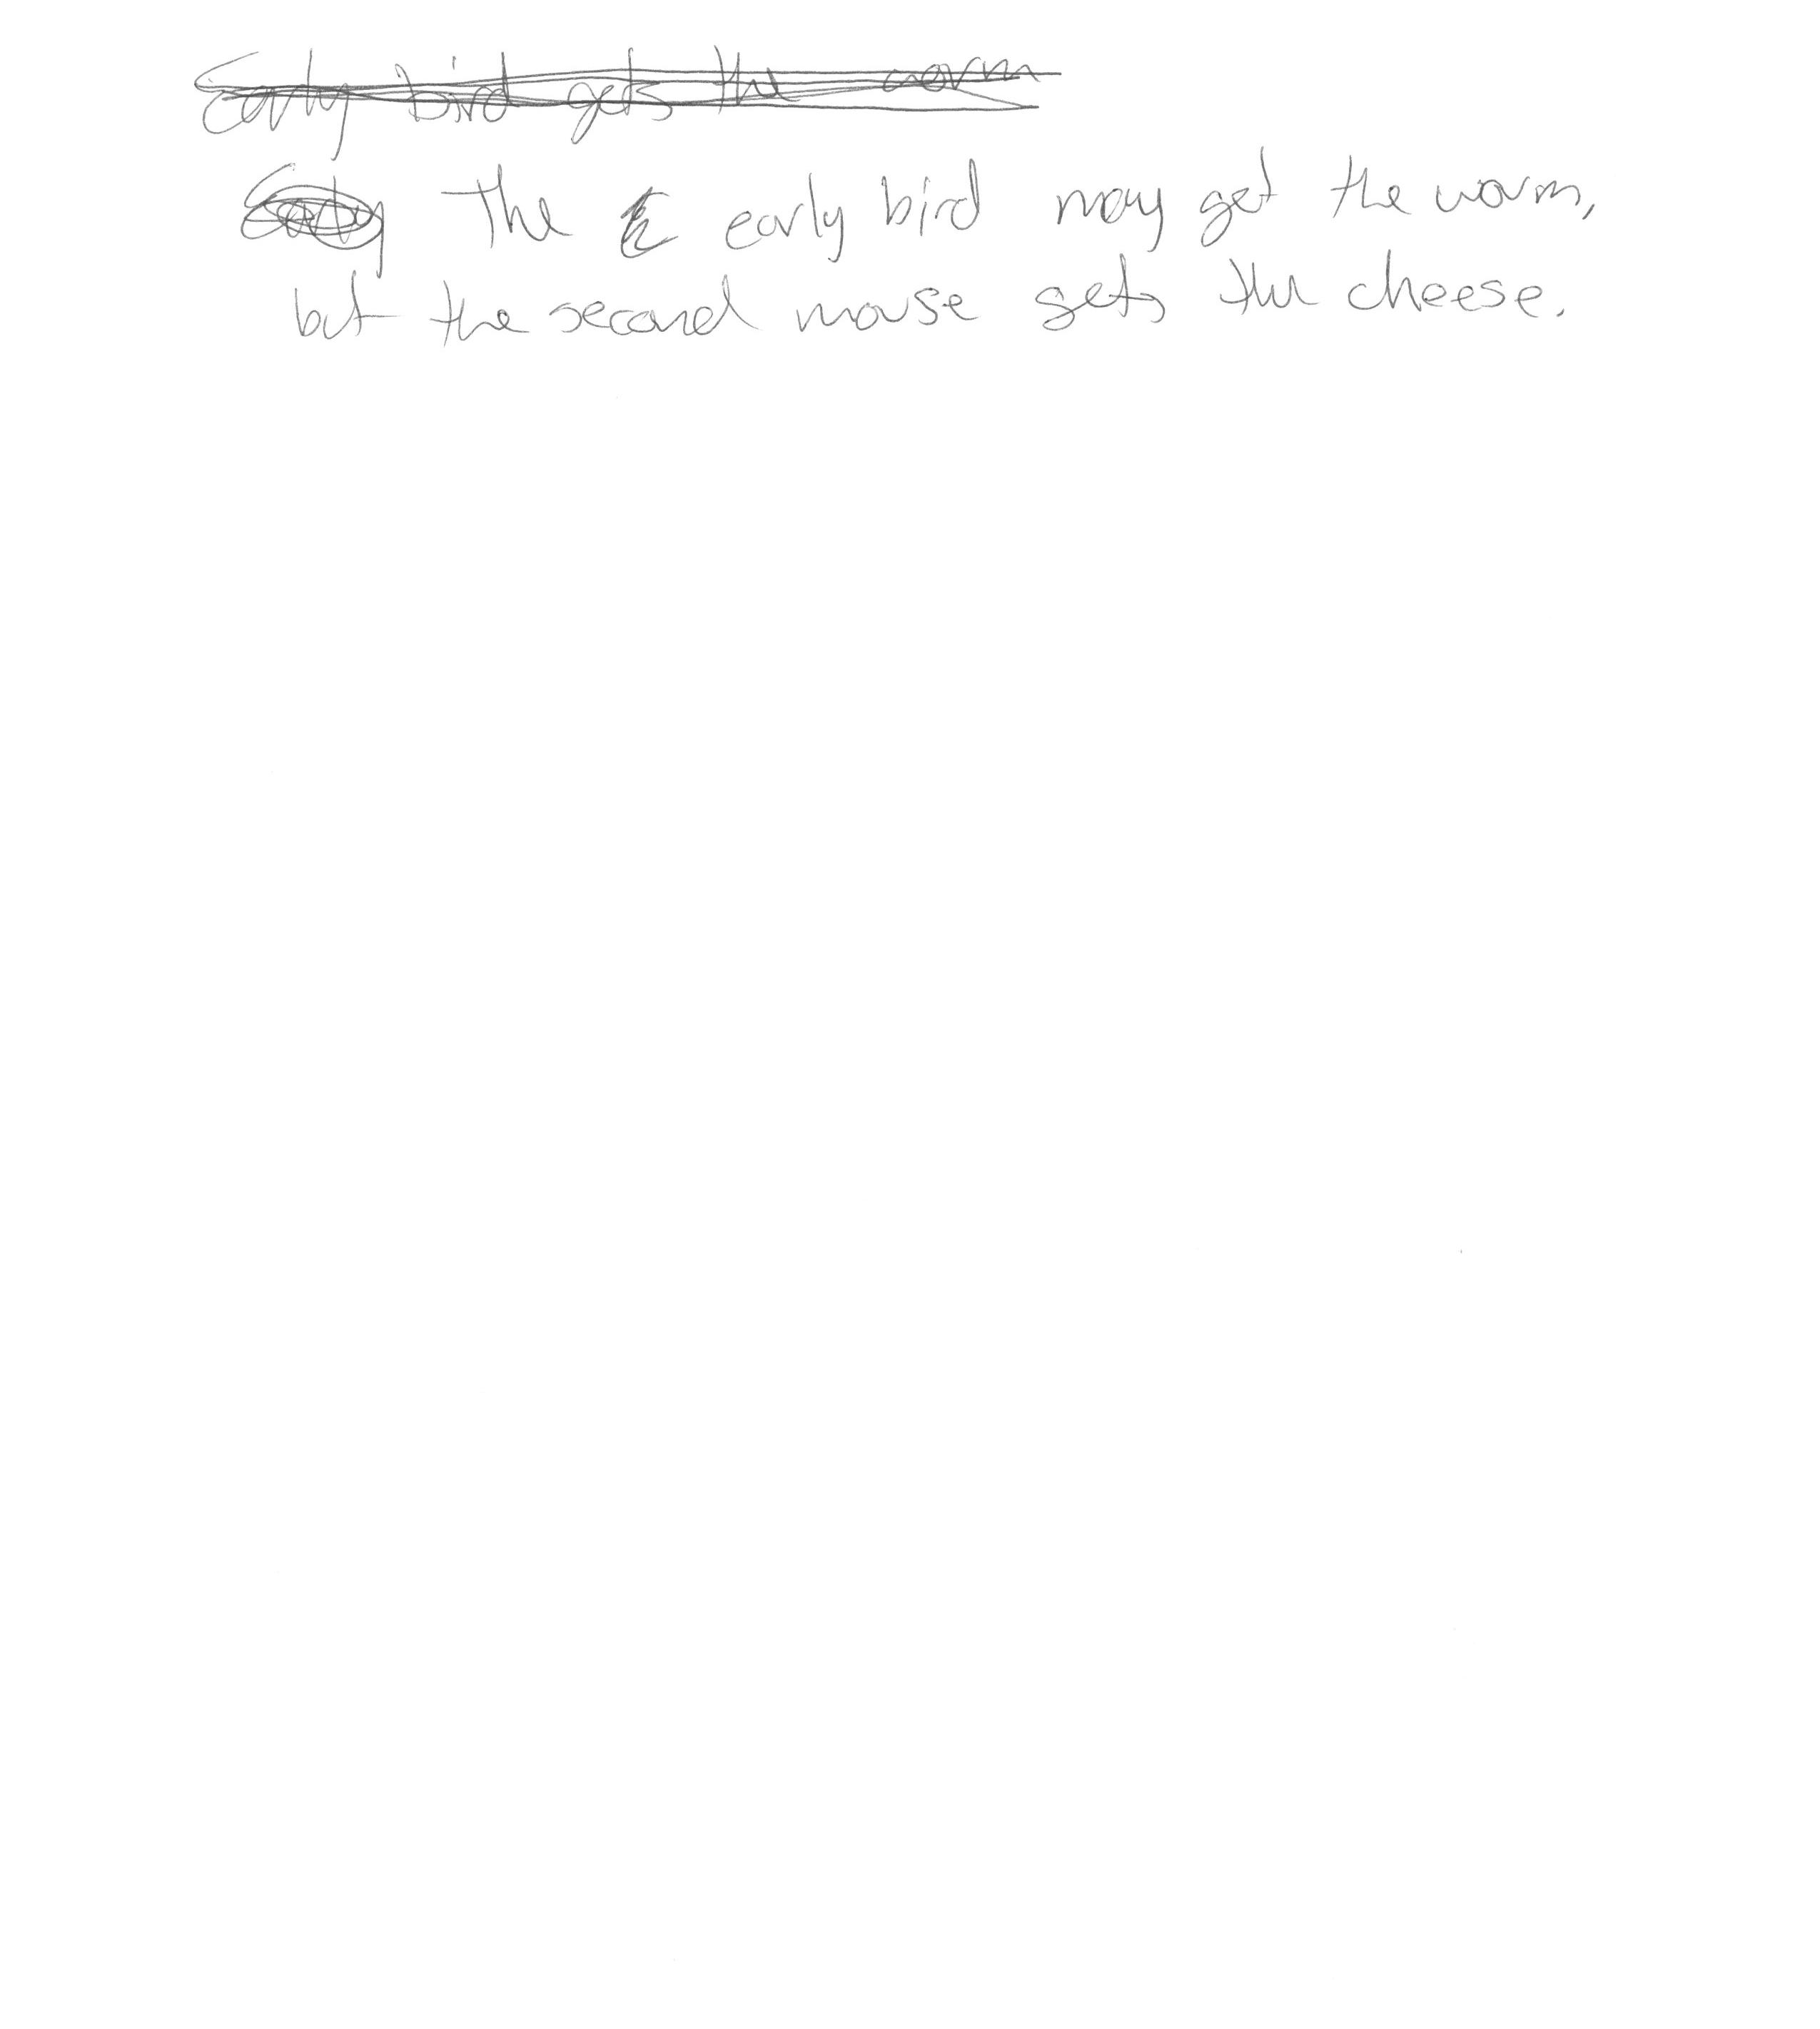 Early bird gets the worm
Early The E early bird may get the worm,
but the second mouse gets the cheese.